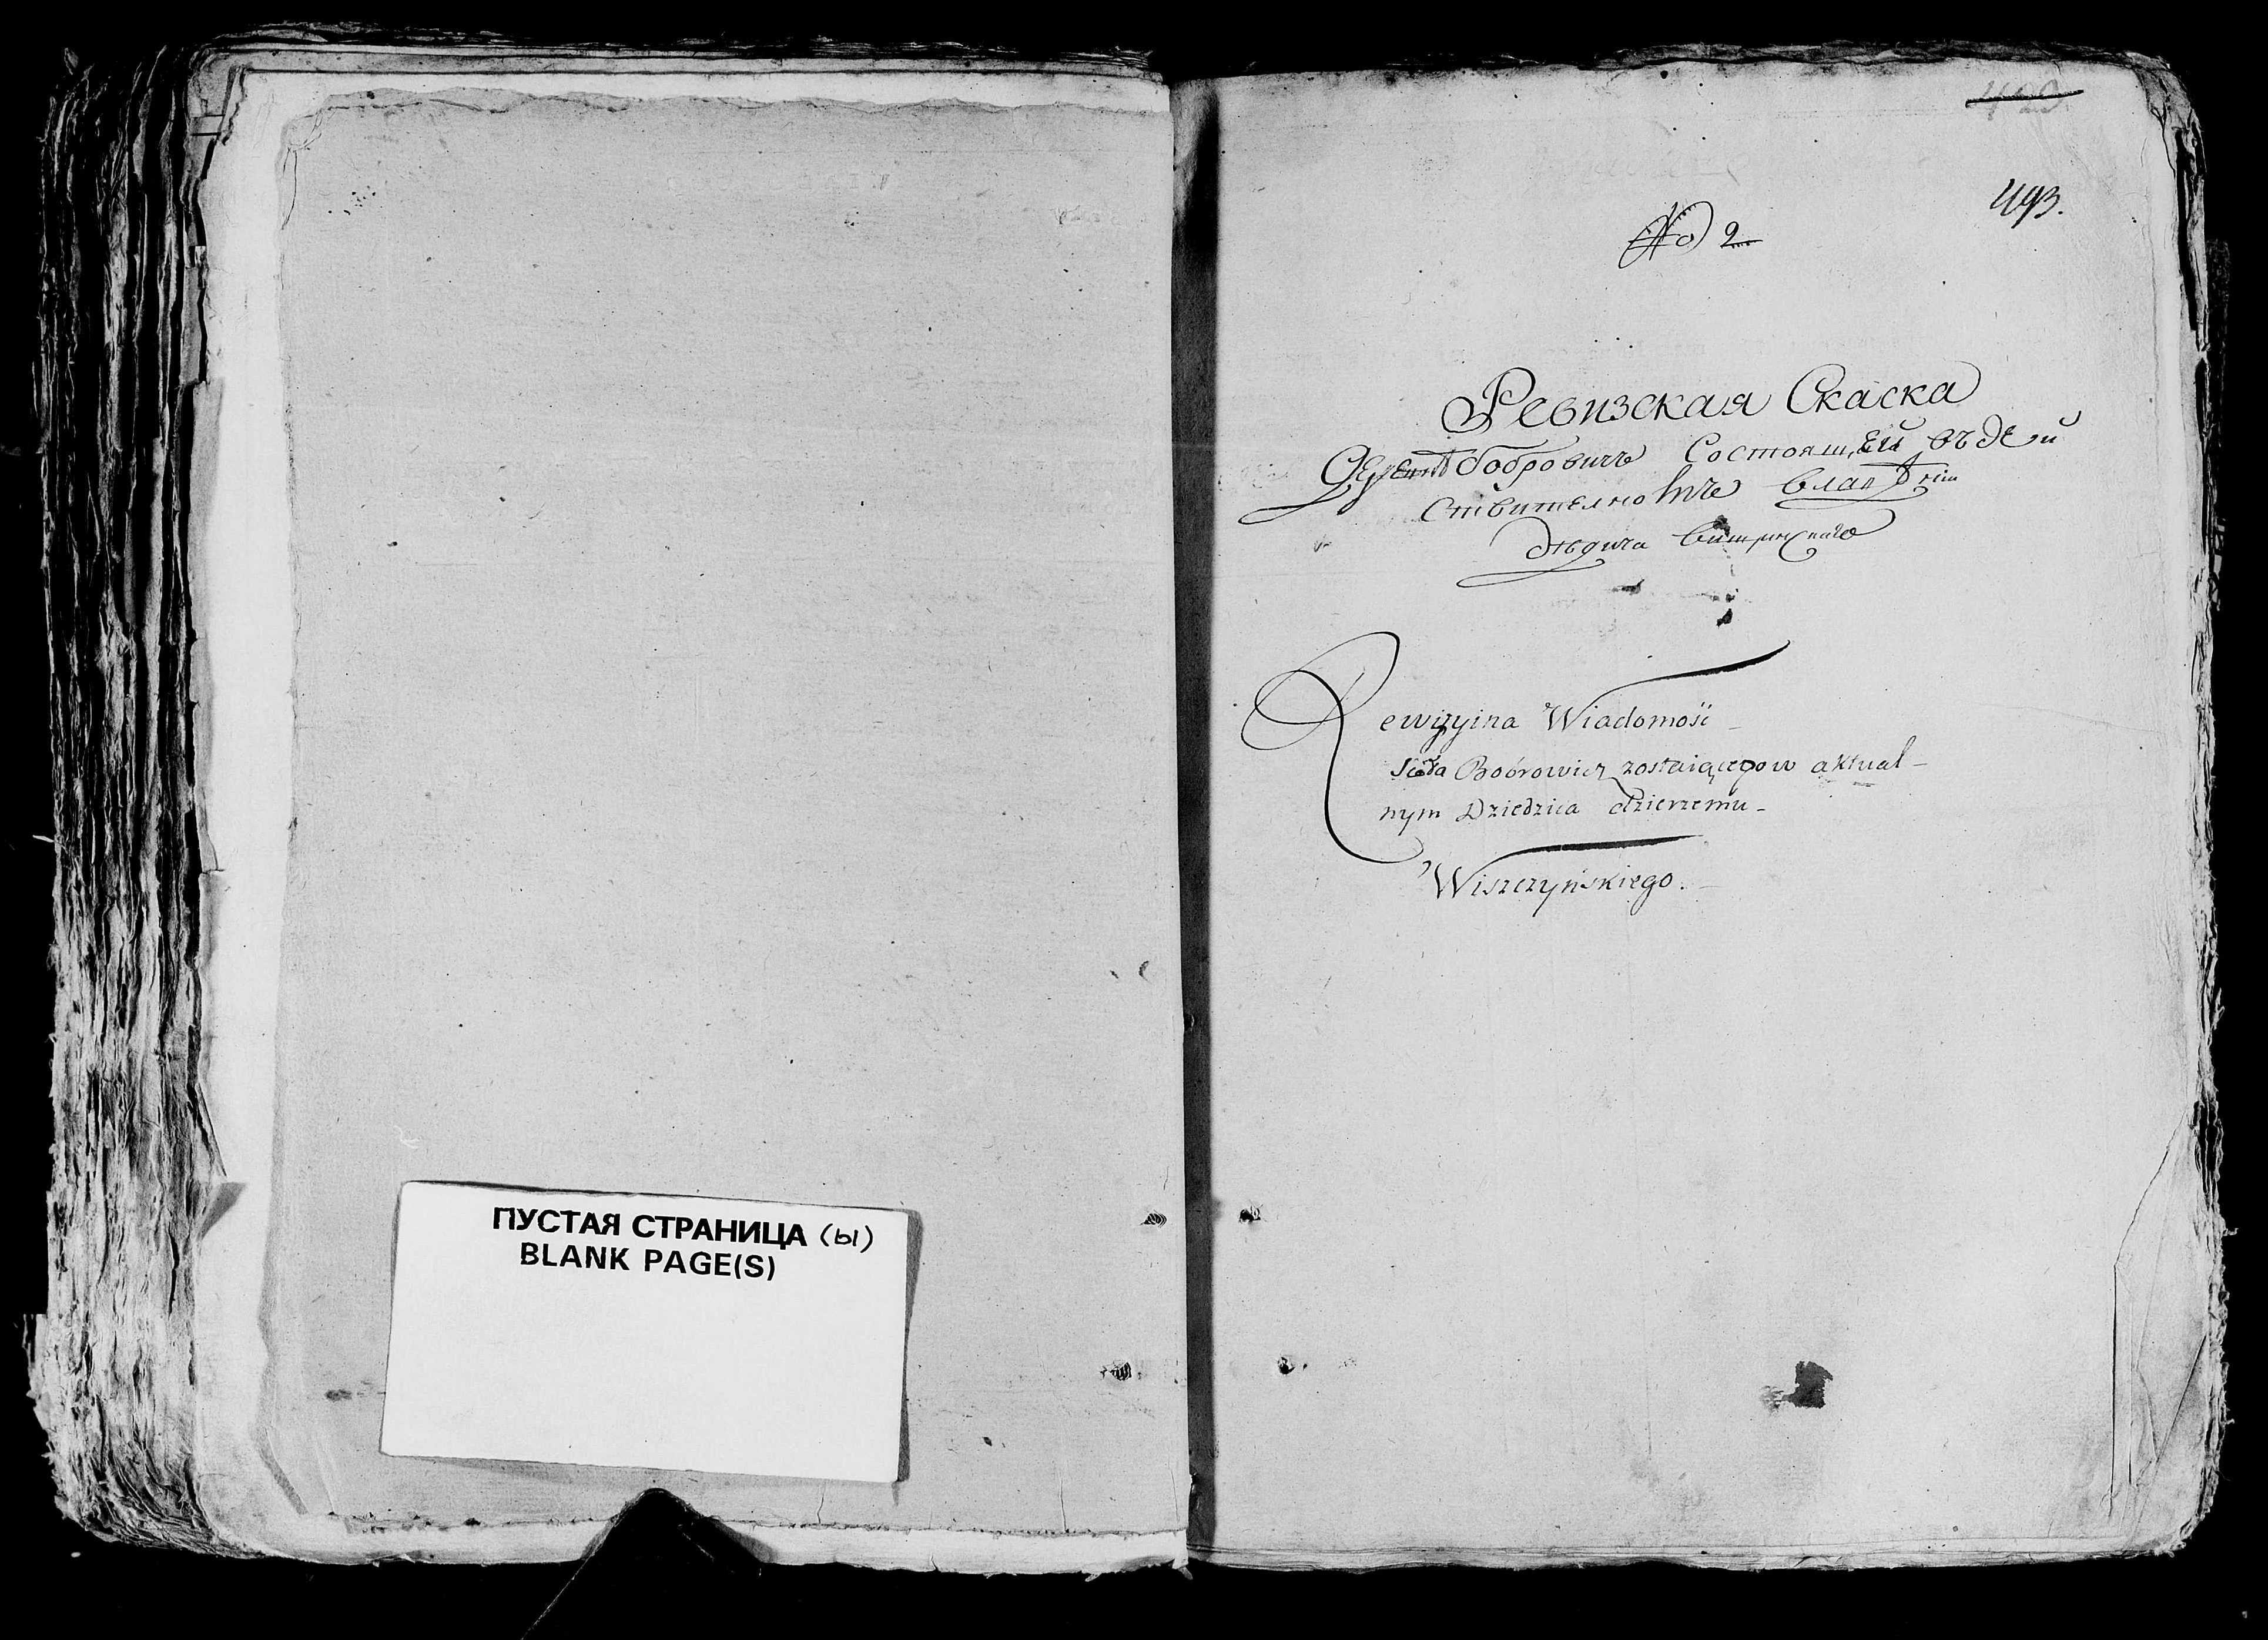 ПУСТАЯ СТРАНИЦА (ы)
BLANK PAGE(S)
493.
No 2
Ревизская Скаска
бобровичъ Состоящей въ дей
ствителномъ
дѣдича
Rewizyina Wiadomość
Sioła Bobrowicz zostaiącego w aktual-
nym Dziedzica dzierzemu
Wiszczyńskiego.